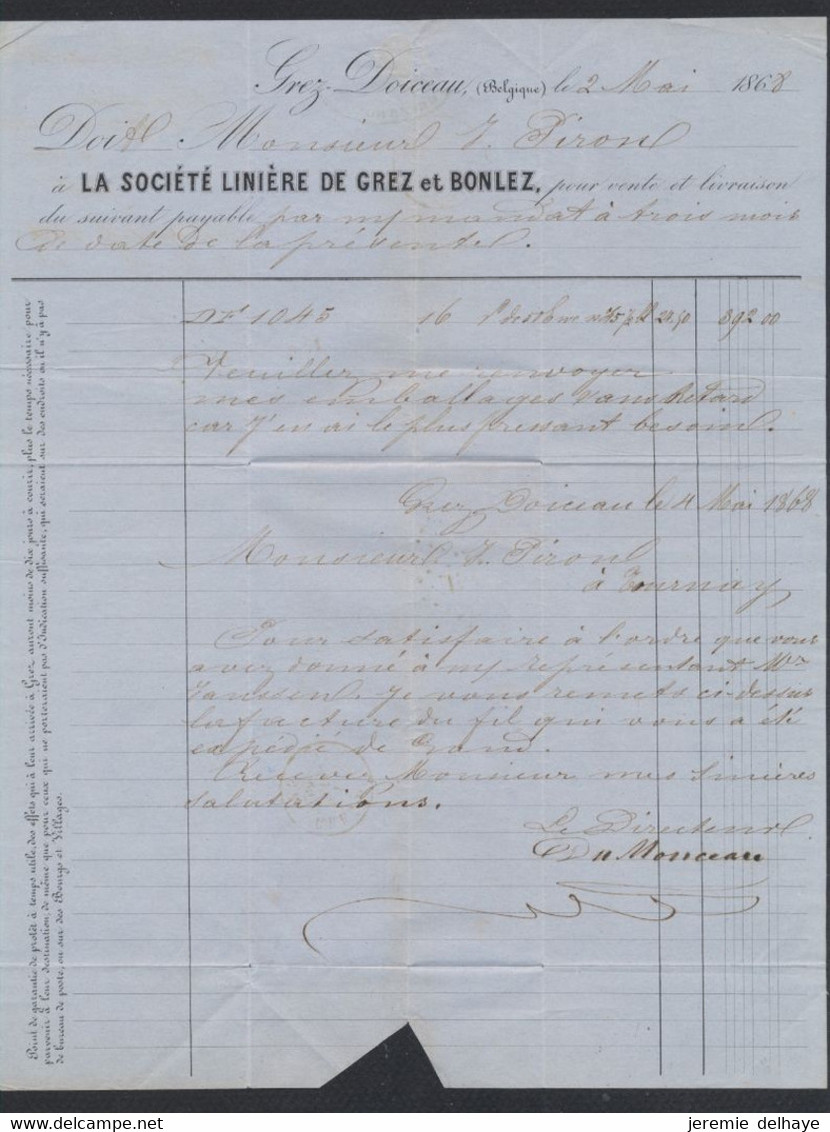 Grez-Doiceau, (Belgique) le 2 Mai 1868
Doit Monsieur J. Piron
à LA SOCIÉTÉ LINIÈRE DE GREZ et BONLEZ, pour vente et livraison
du suivant payable par mon mandat à trois mois
de date de la présente.
DF 1045 16 892 00
Veuillez me renvoyer
mes emballages sans Retard
car j'en ai le plus pressant besoin.
Grez Doiceau le 4 Mai 1868
Monsieur J. Piron
à Tournay
Pour satisfaire à l'ordre que vous
avez donné à mon représentant Mr
Janssen. Je vous remets ci-dessus
la facture du fil qui vous a été
expédié de Gand.
Recevez Monsieur mes sinières
salutations.
Le Directeur
Du Monceau
Point de garantie de protêt à temps utile, des effets qui à leur arrivée à Grez auront moins de dix jours à courir, plus le temps nécessaire pour
parvenir à leur destination; de même que pour ceux qui ne porteraient pas d'indication suffisante, qui seraient sur des endroits où il n'y a pas
de bureau de poste, ou sur des Bourgs et Villages.
jeremie delhaye